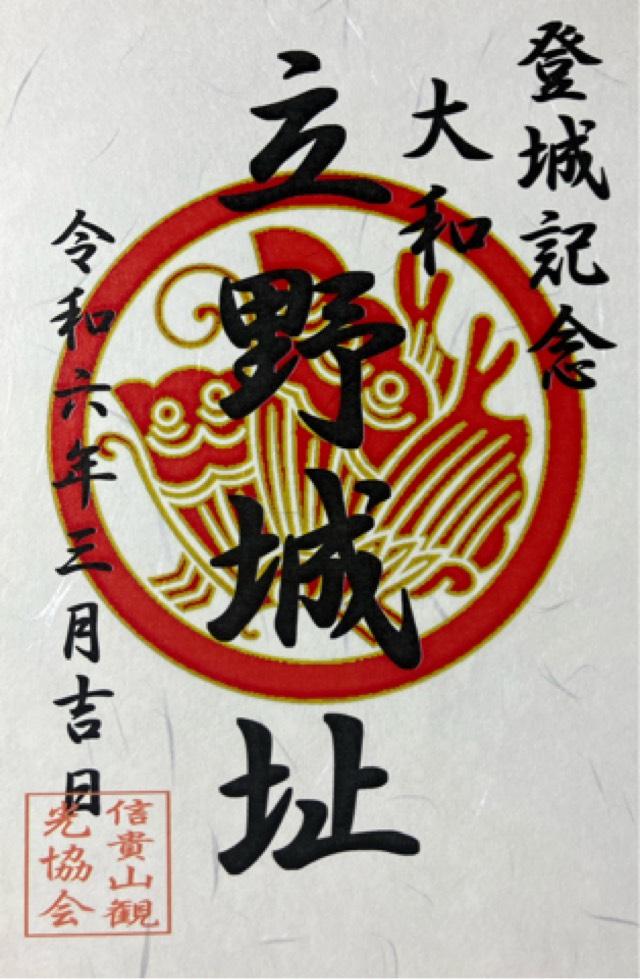 登城記念
大和
立野城址
令和六年三月吉日
信貴山観
光協会